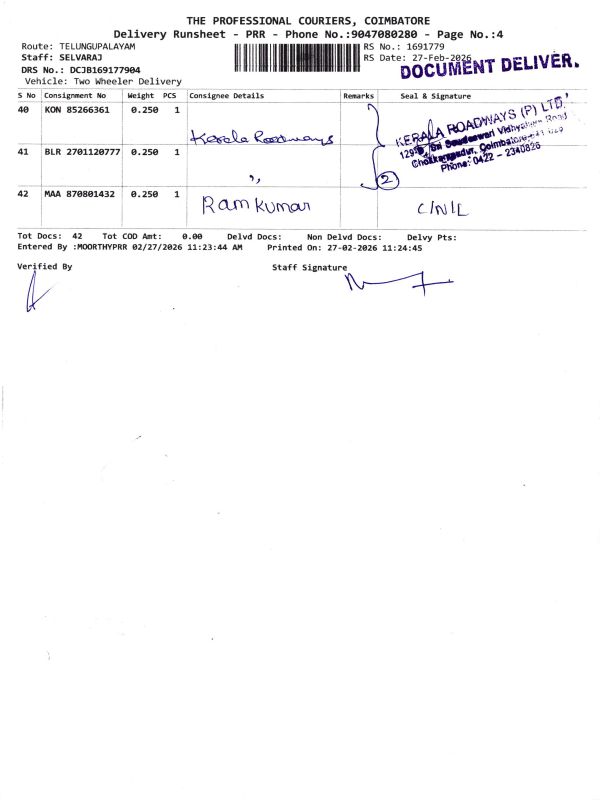 THE PROFESSIONAL COURIERS, COIMBATORE
Delivery Runsheet - PRR - Phone No.:9047080280 - Page No.:4
Route: TELUNGUPALAYAM
RS No.: 1691779
Staff: SELVARAJ
RS Date: 27-Feb-2026
DOCUMENT DELIVER.
DRS No.: DCJB169177904
Vehicle: Two Wheeler Delivery
S No Consignment No Weight PCS Consignee Details Remarks Seal & Signature
40 KON 85266361 0.250 1 Kerala Roadways
KERALA ROADWAYS (P) LTD.
Sri Soudeswari Vidhyalaya Road
Chokkampudur, Coimbatore
Phone: 0422 - 2340826
41 BLR 2701120777 0.250 1 ,,
2
42 MAA 870801432 0.250 1 Ram Kumar C/N/L
Tot Docs: 42 Tot COD Amt: 0.00 Delvd Docs: Non Delvd Docs: Delvy Pts:
Entered By :MOORTHYPRR 02/27/2026 11:23:44 AM Printed On: 27-02-2026 11:24:45
Verified By Staff Signature